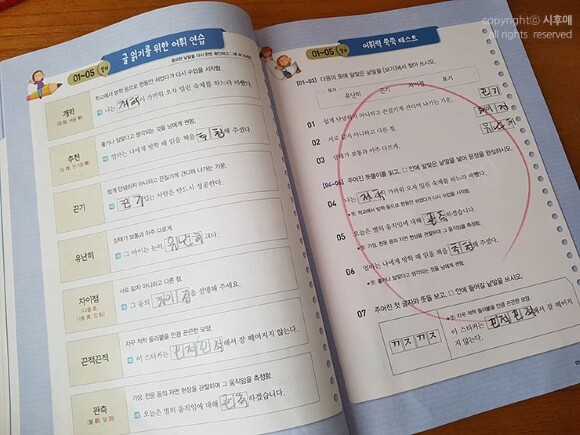 copyrightⓒ 시후애
all rights reserved
01~05 정답
글 읽기를 위한 어휘 연습
개학
학교에서 방학 등으로 한동안 쉬었다가 다시 수업을 시작함.
나는 개학이 가까워 오자 밀린 숙제를 하느라 바빴다.
추천
좋거나 알맞다고 생각되는 것을 남에게 권함.
엄마는 나에게 방학 때 읽을 책을 추천해 주셨다.
끈기
쉽게 단념하지 아니하고 끈질기게 견디어 나가는 기운.
끈기 있는 사람은 반드시 성공한다.
유난히
상태가 보통과 아주 다르게.
그 아이는 눈이 유난히 크다.
차이점
서로 같지 아니하고 다른 점.
그 둘의 차이점을 설명해 주세요.
끈적끈적
자꾸 척척 들러붙을 만큼 끈끈한 모양.
이 스티커는 끈적끈적해서 잘 떼어지지 않는다.
관측
기상, 천문 등의 자연 현상을 관찰하여 그 움직임을 측정함.
오늘은 별의 움직임에 대해 관측하겠습니다.
01~05 정답
어휘력 쑥쑥 테스트
[01~03] 다음의 뜻에 알맞은 낱말을 [보기]에서 찾아 쓰시오.
보기
유난히 끈기 차이점
01 쉽게 단념하지 아니하고 끈질기게 견디어 나가는 기운. 끈기
02 서로 같지 아니하고 다른 점. 차이점
03 상태가 보통과 아주 다르게. 유난히
[04~06] 주어진 뜻풀이를 읽고, □ 안에 알맞은 낱말을 넣어 문장을 완성하시오.
04 나는 개학이 가까워 오자 밀린 숙제를 하느라 바빴다.
뜻 학교에서 방학 등으로 한동안 쉬었다가 다시 수업을 시작함.
05 오늘은 별의 움직임에 대해 관측하겠습니다.
뜻 기상, 천문 등의 자연 현상을 관찰하여 그 움직임을 측정함.
06 엄마는 나에게 방학 때 읽을 책을 추천해 주셨다.
뜻 좋거나 알맞다고 생각되는 것을 남에게 권함.
07 주어진 첫 글자와 뜻을 보고, □ 안에 들어갈 낱말을 쓰시오.
ㄲㅈㄲㅈ
뜻 자꾸 척척 들러붙을 만큼 끈끈한 모양.
이 스티커는 끈적끈적해서 잘 떼어지지 않는다.